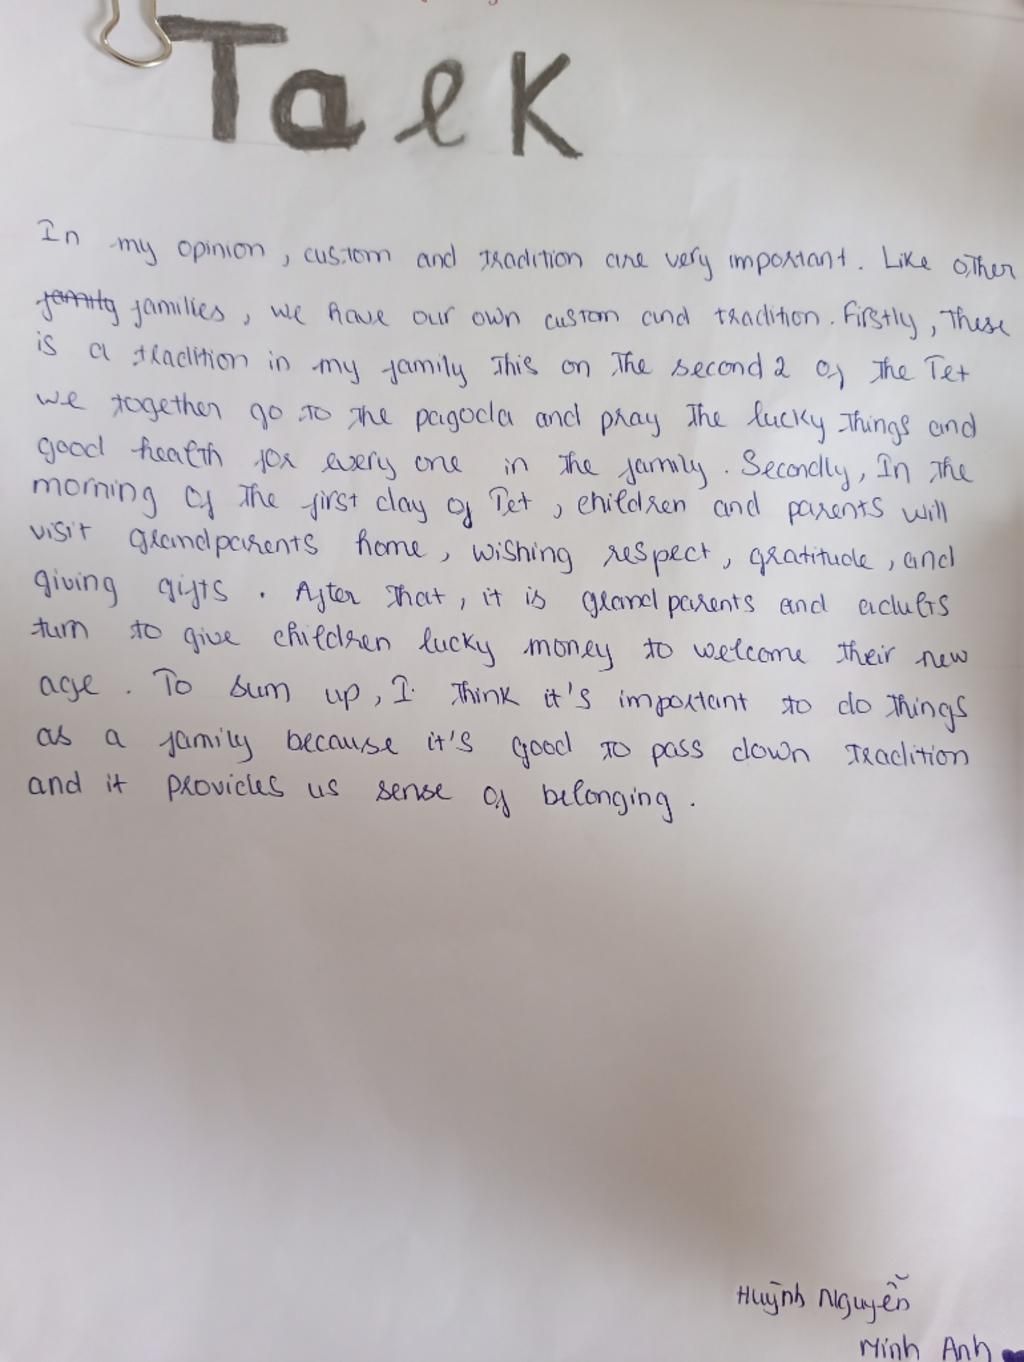 Talk
In my opinion, custom and tradition are very important. Like other
family families, we have our own custom and tradition. Firstly, These
is a tradition in my family This on The second 2 of The Tet
we together go to the pagoda and pray The lucky Things and
good health for every one in The family. Secondly, In The
morning of The first day of Tet, children and parents will
visit grandparents home, wishing respect, gratitude, and
giving gifts. After that, it is grandparents and adults
turn to give children lucky money to welcome their new
age. To sum up, I Think it's important to do Things
as a family because it's good to pass down tradition
and it provides us sense of belonging.
Huỳnh Nguyễn
Minh Anh